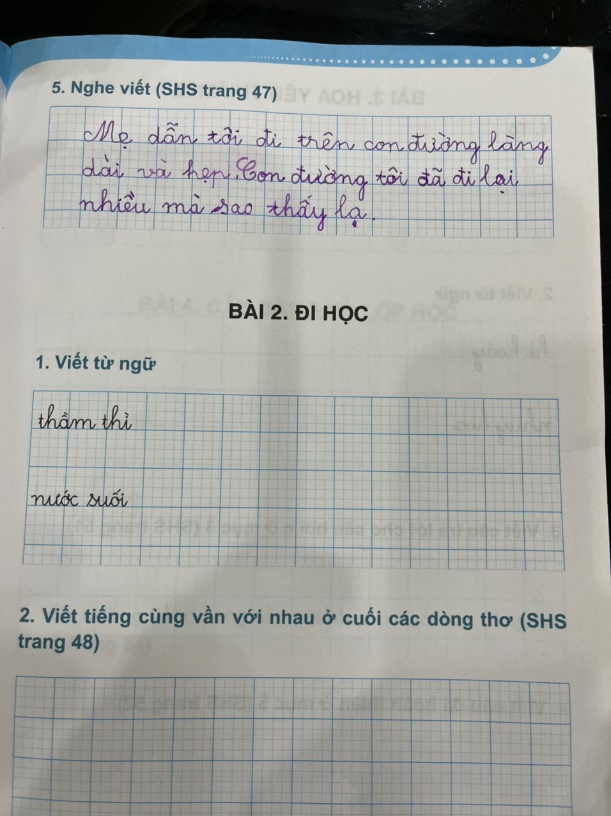 5. Nghe viết (SHS trang 47)
Mẹ dẫn tôi đi trên con đường làng
dài và hẹp. Con đường tôi đã đi lại
nhiều mà sao thấy lạ.
BÀI 2. ĐI HỌC
1. Viết từ ngữ
thầm thì
nước suối
2. Viết tiếng cùng vần với nhau ở cuối các dòng thơ (SHS
trang 48)